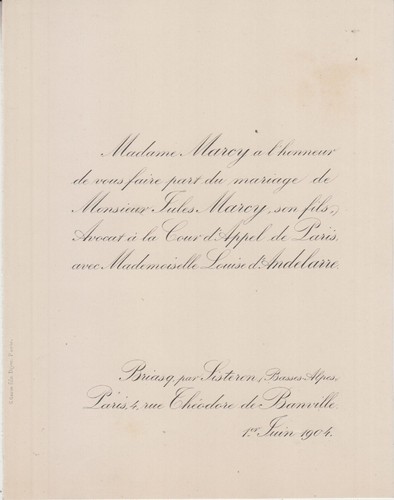 Madame Marcy a l'honneur
de vous faire part du mariage de
Monsieur Jules Marcy, son fils,
Avocat à la Cour d'Appel de Paris,
avec Mademoiselle Louise d'Andelarre.
Briasq, par Sisteron, (Basses-Alpes)
Paris, 4, rue Théodore de Banville.
1er Juin 1904.